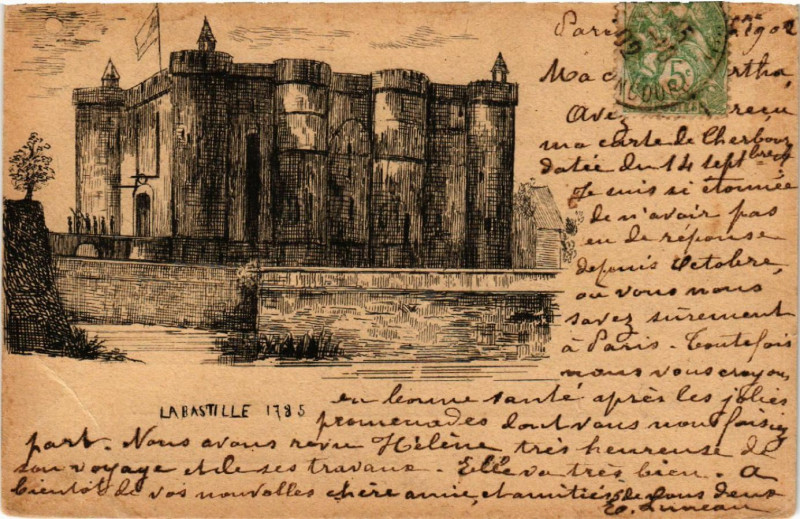 Paris 1902
Ma Bertha,
Avez reçu
ma carte de Cherbourg
datée du 14 septbre
Je suis si étonnée
de n'avoir pas
eu de réponse
depuis Octobre,
où vous nous
savez sûrement
à Paris - Toutefois
nous vous croyons
en bonne santé après les jolies
promenades dont vous nous faisiez
part. Nous avons revu Hélène très heureuse de
son voyage et de ses travaux. Elle va très bien. A
bientôt de vos nouvelles chère amie, et amitiés de nous deux
LA BASTILLE 1785
5c